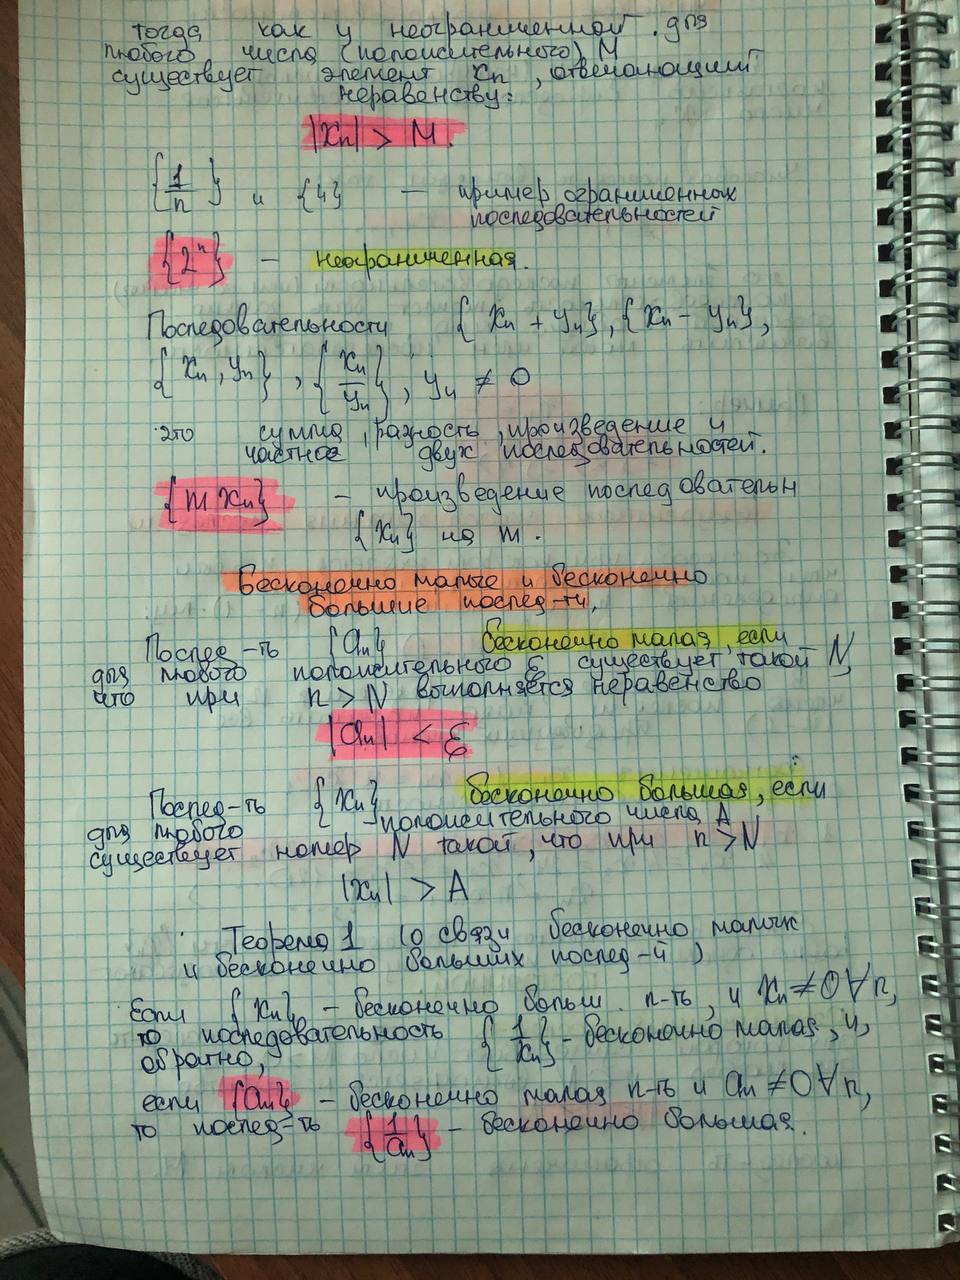 тогда как у неограниченной для
любого числа (положительного) M
существует элемент xₙ, отвечающий
неравенству:
|xₙ| > M.
{1/n} и {4} — пример ограниченных
последовательностей
{2ⁿ} – неограниченная.
Последовательности {xₙ + yₙ}, {xₙ – yₙ},
{xₙ, yₙ}, {xₙ/yₙ}, yₙ ≠ 0
это сумма, разность, произведение и
частное двух последовательностей.
{m xₙ} – произведение последовательн
{xₙ} на m.
Бесконечно малые и бесконечно
большие послед-ти.
Послед-ть {αₙ} бесконечно малая, если
для любого положительного ε существует такой N,
что при n > N выполняется неравенство
|αₙ| < ε
Послед-ть {xₙ} бесконечно большая, если
для любого положительного числа A
существует номер N такой, что при n > N
|xₙ| > A
Теорема 1 (о связи бесконечно малых
и бесконечно больших послед-й)
Если {xₙ} – бесконечно больш. п-ть, и xₙ ≠ 0 ∀ n,
то последовательность {1/xₙ} – бесконечно малая, и,
обратно,
если {αₙ} – бесконечно малая п-ть и αₙ ≠ 0 ∀ n,
то послед-ть {1/αₙ} – бесконечно большая.